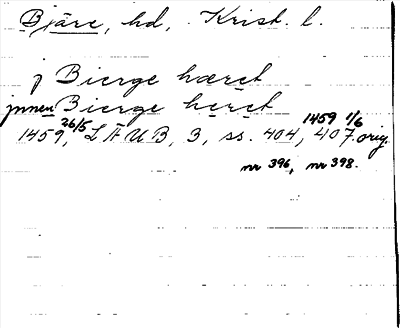 Bjäre, hd, Krist. l.
j Bierge hæret
jnnen Bierge heret
1459 26/5, LÄUB, 3, ss. 404, 1459 1/6 407. orig.
nr 396, nr 398.